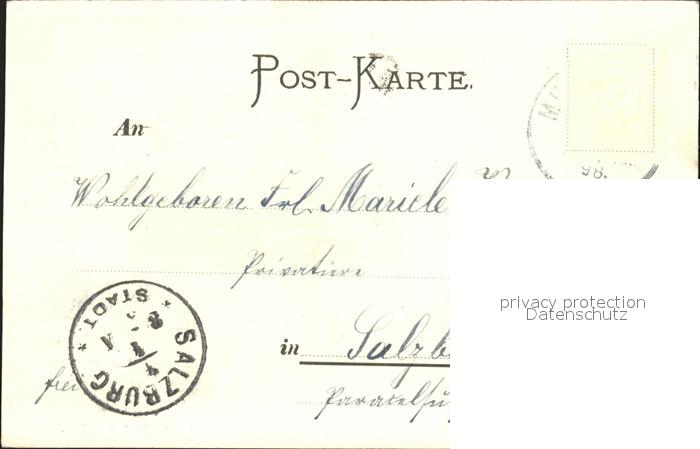 POST-KARTE.
An
Wohlgeboren Frl. Mariele
Privatiere
in Salzb
frei
Paracelsu
SALZBURG
STADT
privacy protection
Datenschutz